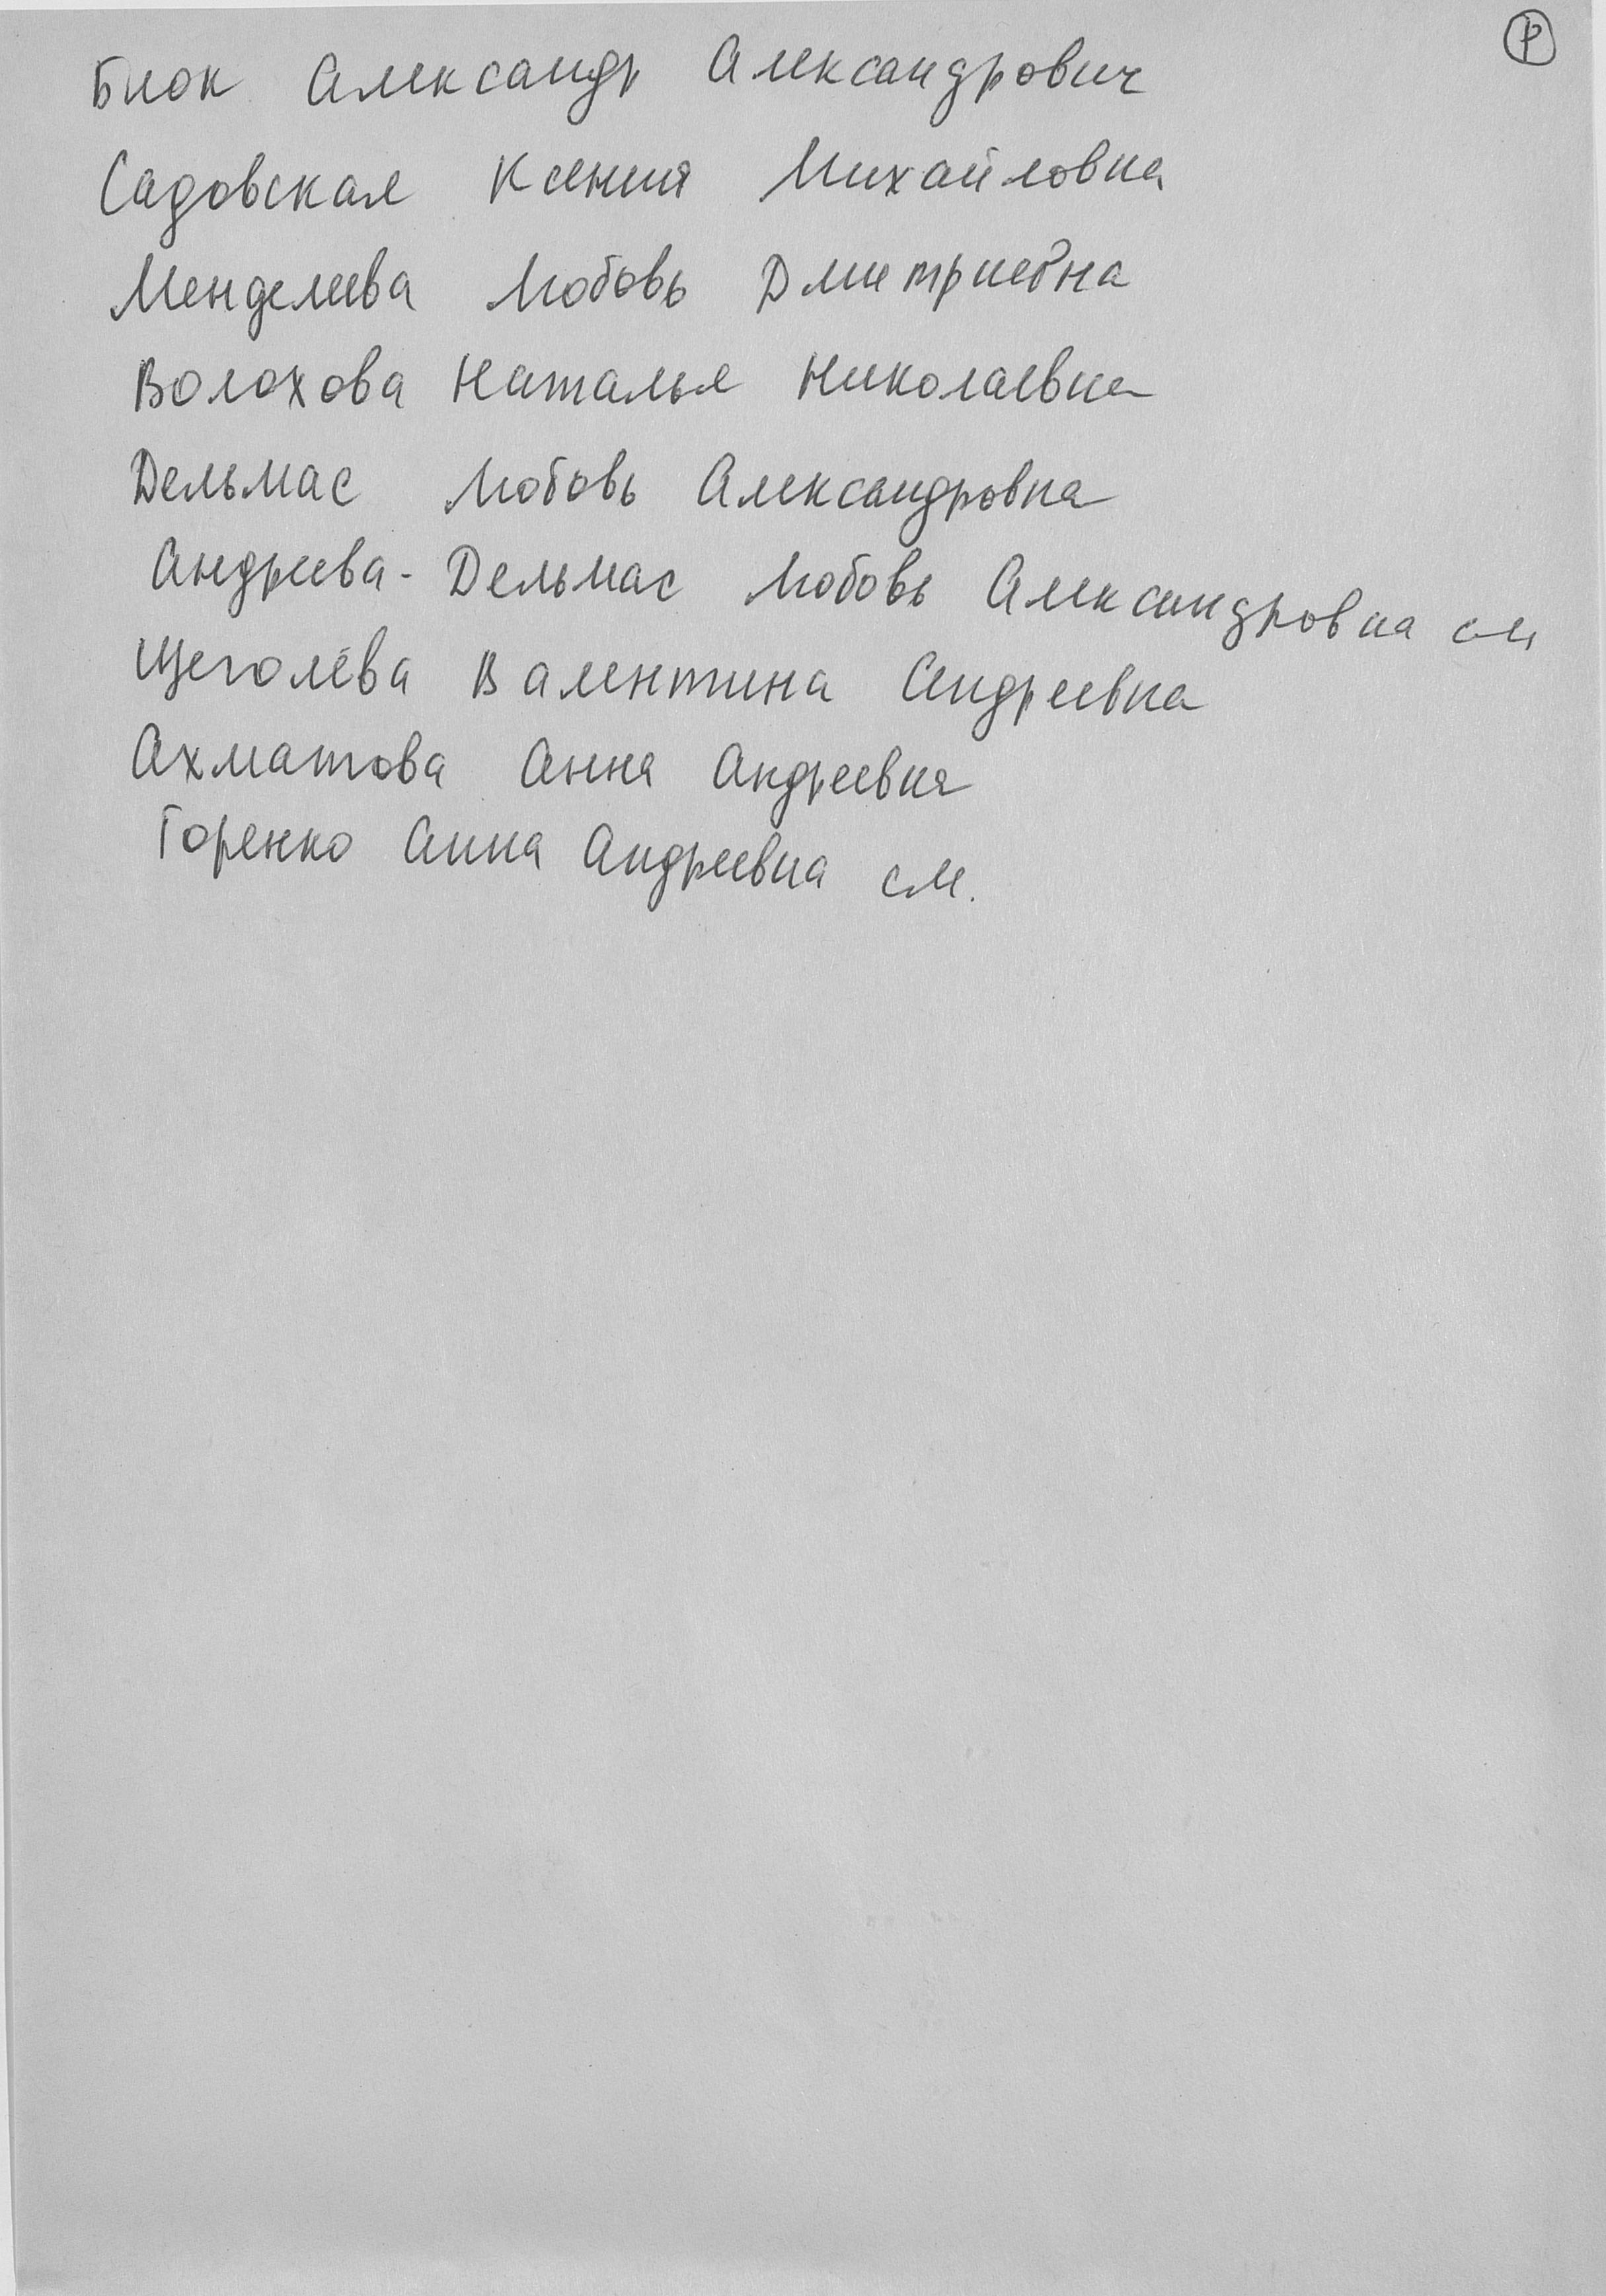 Р
Блок Александр Александрович
Садовская Ксения Михайловна
Менделеева Любовь Дмитриевна
Волохова Наталья Николаевна
Дельмас Любовь Александровна
Андреева-Дельмас Любовь Александровна см
Щеголёва Валентина Андреевна
Ахматова Анна Андреевна
Горенко Анна Андреевна см.